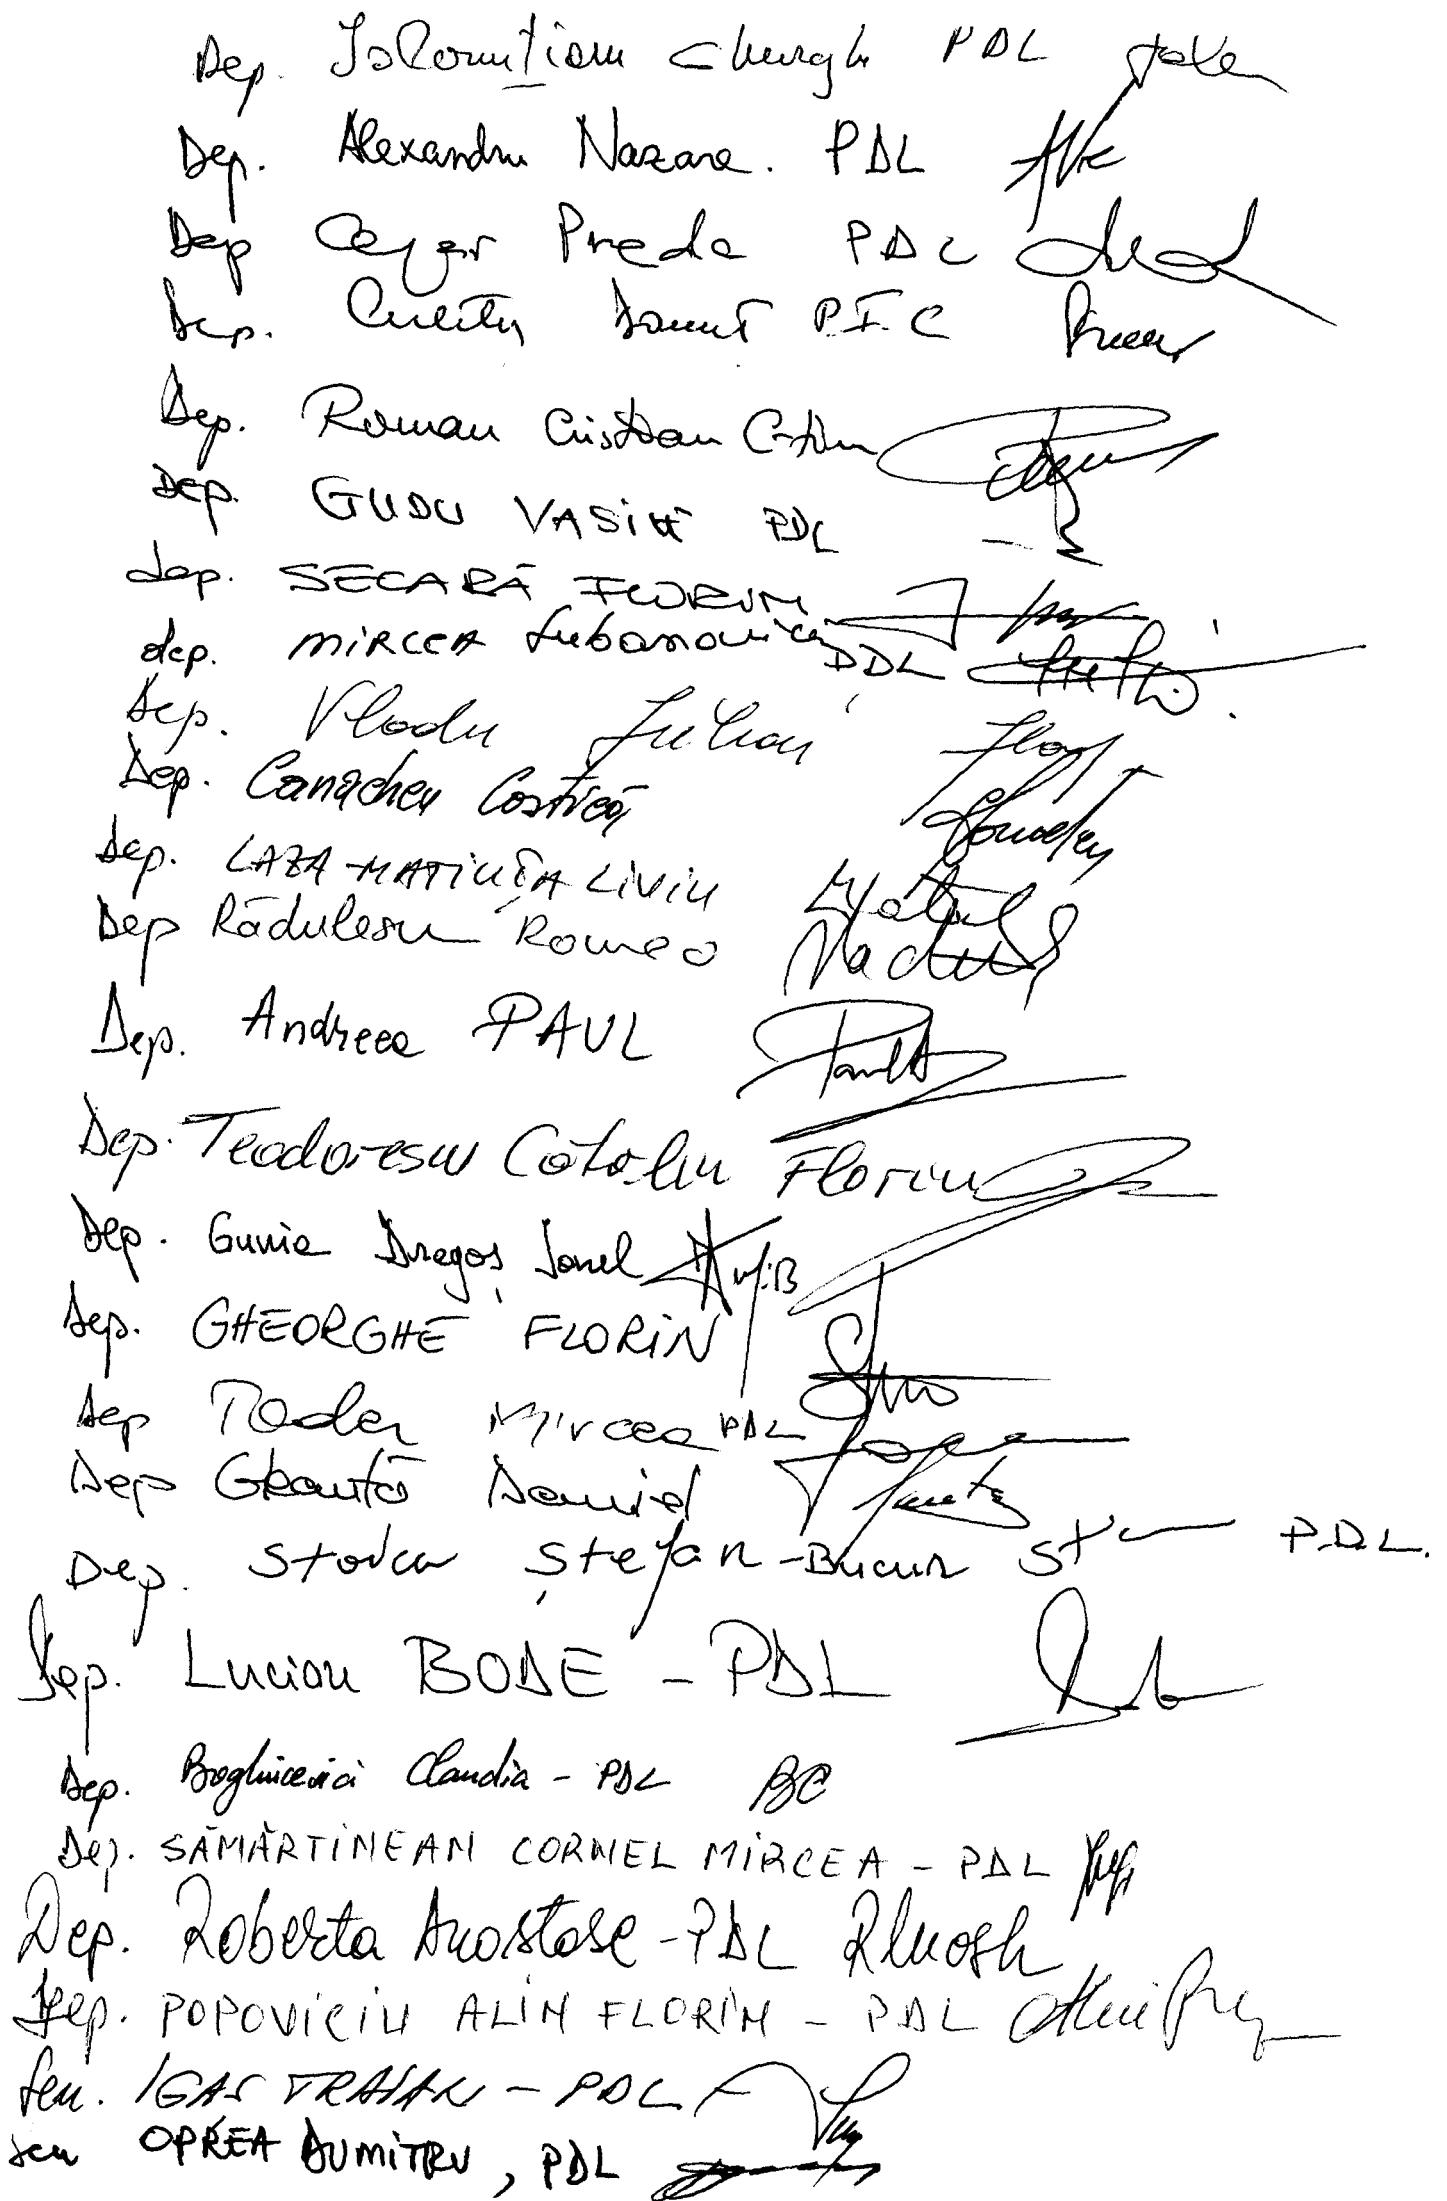 Dep. Ialomițianu Gheorghe PDL
Dep. Alexandru Nazare. PDL
Dep Cezar Preda PDL
Dep. Culețu Dănuț
Dep. Roman Cristian C-tin
Dep. GUDU VASILE PDL
dep. SECARĂ FLORIN
dep. MIRCEA Lubanovici PDL
Dep. Vladu Iulian
Dep. Canacheu Costică
Dep. LAZA-MATIUȚA LIVIU
Dep Rădulescu Romeo
Dep. Andreea PAUL
Dep. Teodorescu Cătălin Florin
Dep. Gunia Dragoș Ionel
Dep. GHEORGHE FLORIN
Dep Toader Mircea PDL
Dep Geantă Daniel
Dep. Stoica Ștefan-Bucur P.D.L.
Dep. Lucian BODE - PDL
Dep. Boghicevici Claudia - PDL BC
Dep. SĂMĂRTINEAN CORNEL MIRCEA - PDL
Dep. Roberta Anastase - PDL
Dep. POPOVICIU ALIN FLORIN - PDL
Sen. IGAȘ TRAIAN - PDL
sen OPREA DUMITRU, PDL